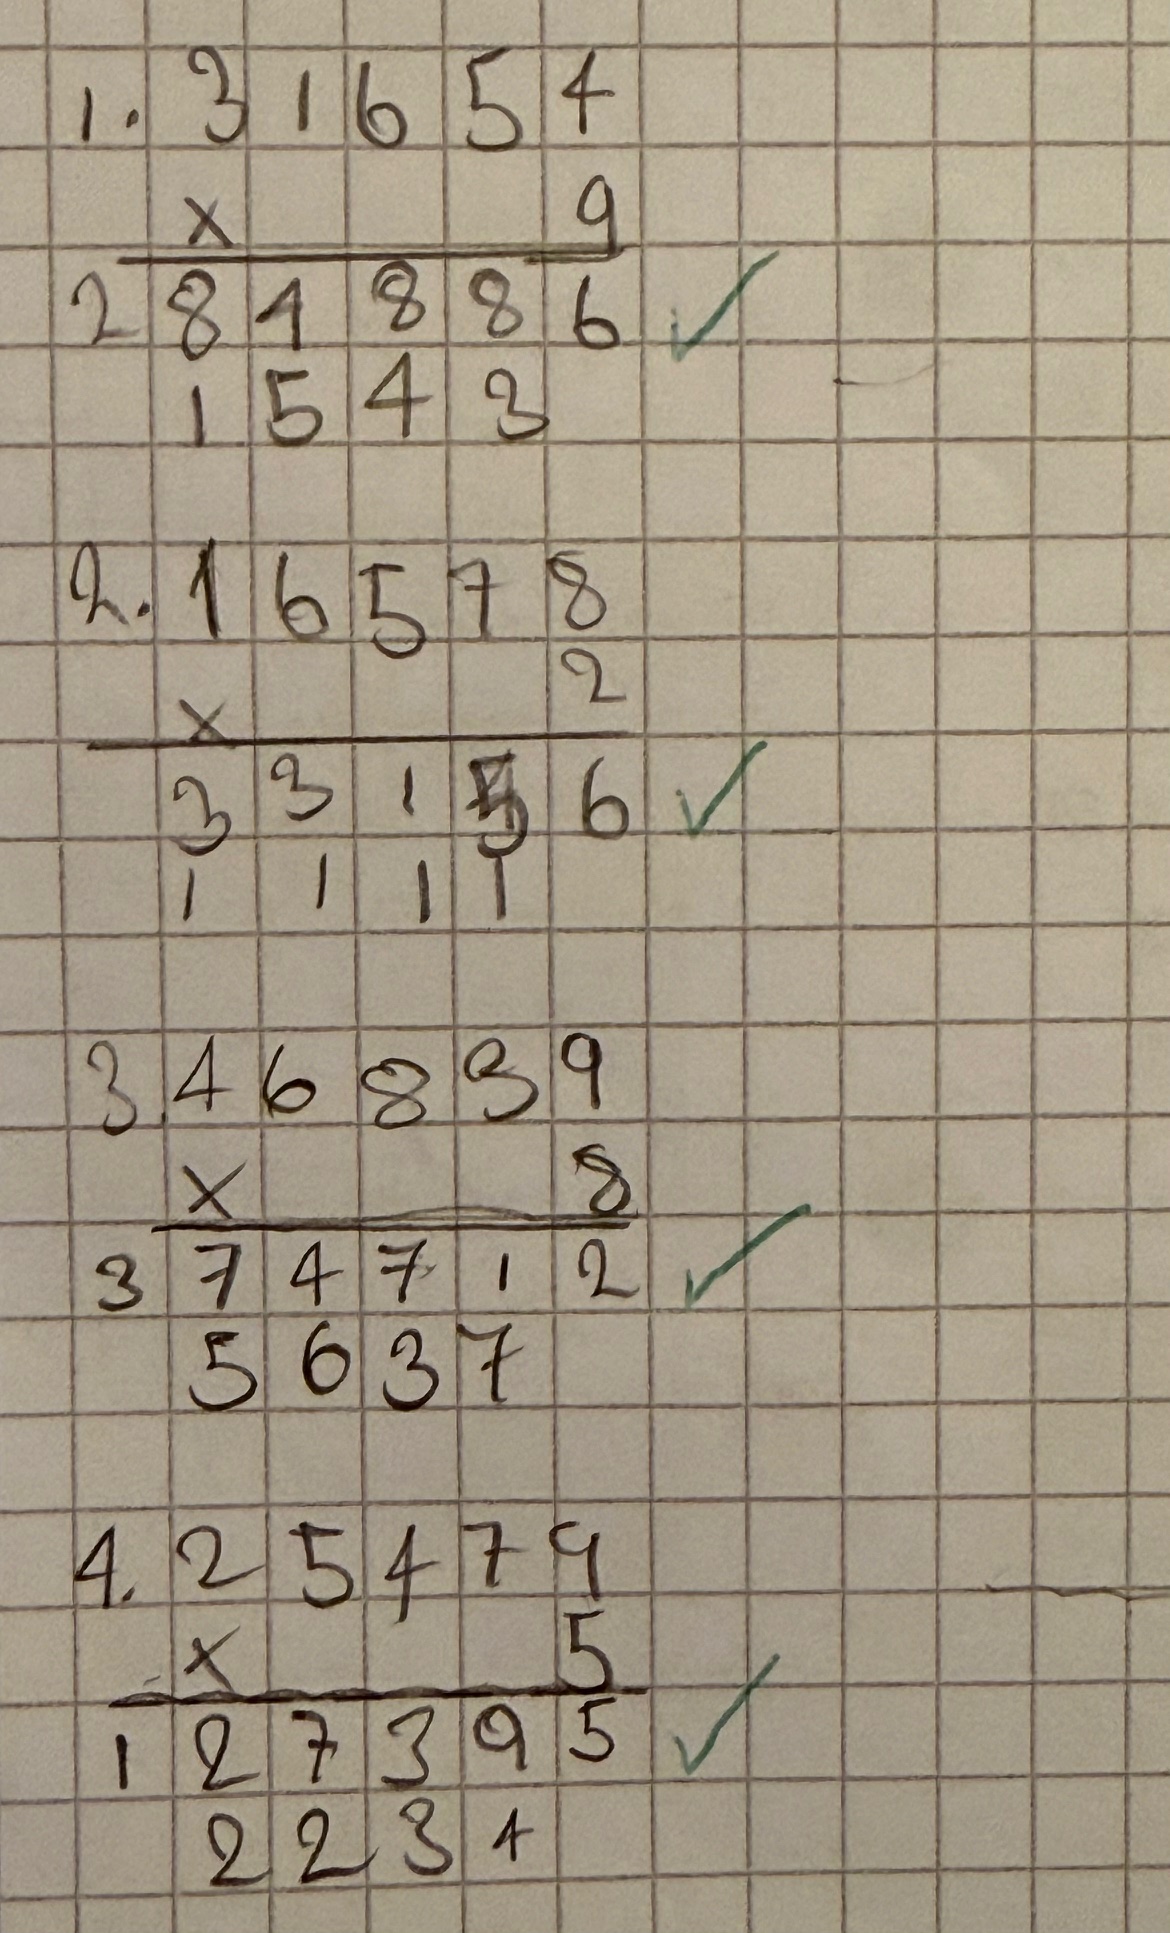 1. 3 1 6 5 4
x 9
2 8 4 8 8 6
1 5 4 3
2. 1 6 5 7 8
x 2
3 3 1 5 6
1 1 1 1
3. 4 6 8 3 9
x 8
3 7 4 7 1 2
5 6 3 7
4. 2 5 4 7 9
x 5
1 2 7 3 9 5
2 2 3 4